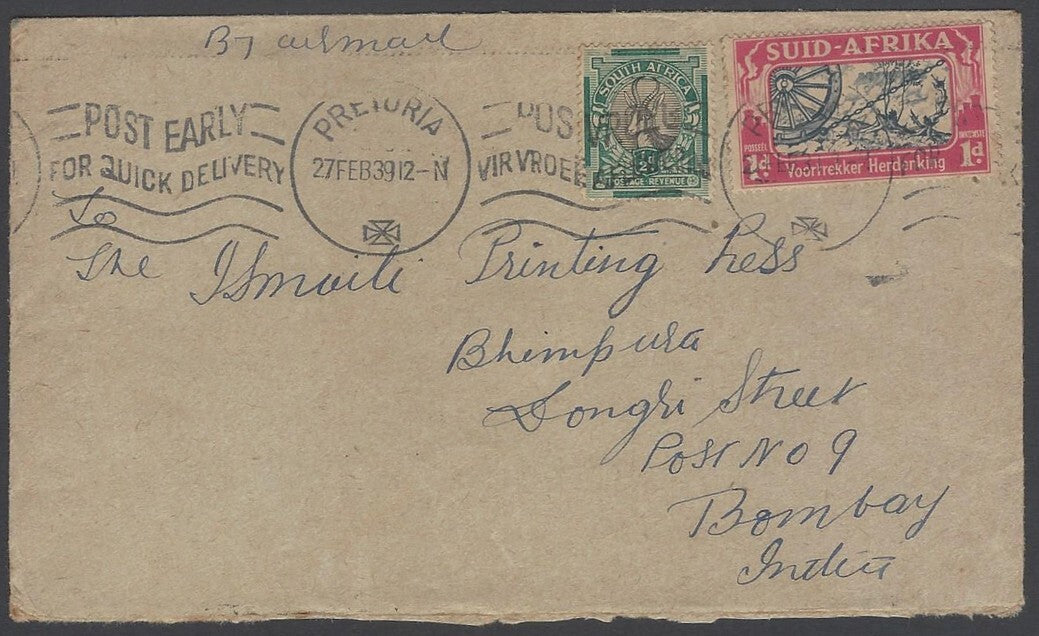 By airmail
POST EARLY
FOR QUICK DELIVERY
PRETORIA
27FEB3912-N
POS
VIR VROEË
SOUTH AFRICA
POSTAGE REVENUE
SUID-AFRIKA
POSSEËL
INKOMSTE
1d 1d
Voortrekker Herdenking
To
The Ismaili Printing Press
Bhimpura
Dongri Street
Post No 9
Bombay
India